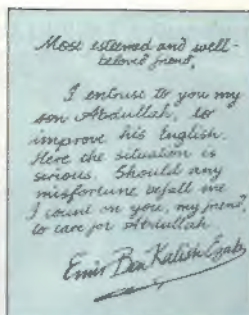 Most esteemed and well-
beloved friend,
I entrust to you my
son Abdullah, to
improve his English.
Here the situation is
serious. Should any
misfortune befall me
I count on you, my friend,
to care for Abdullah
Emir Ben Kalish Ezab